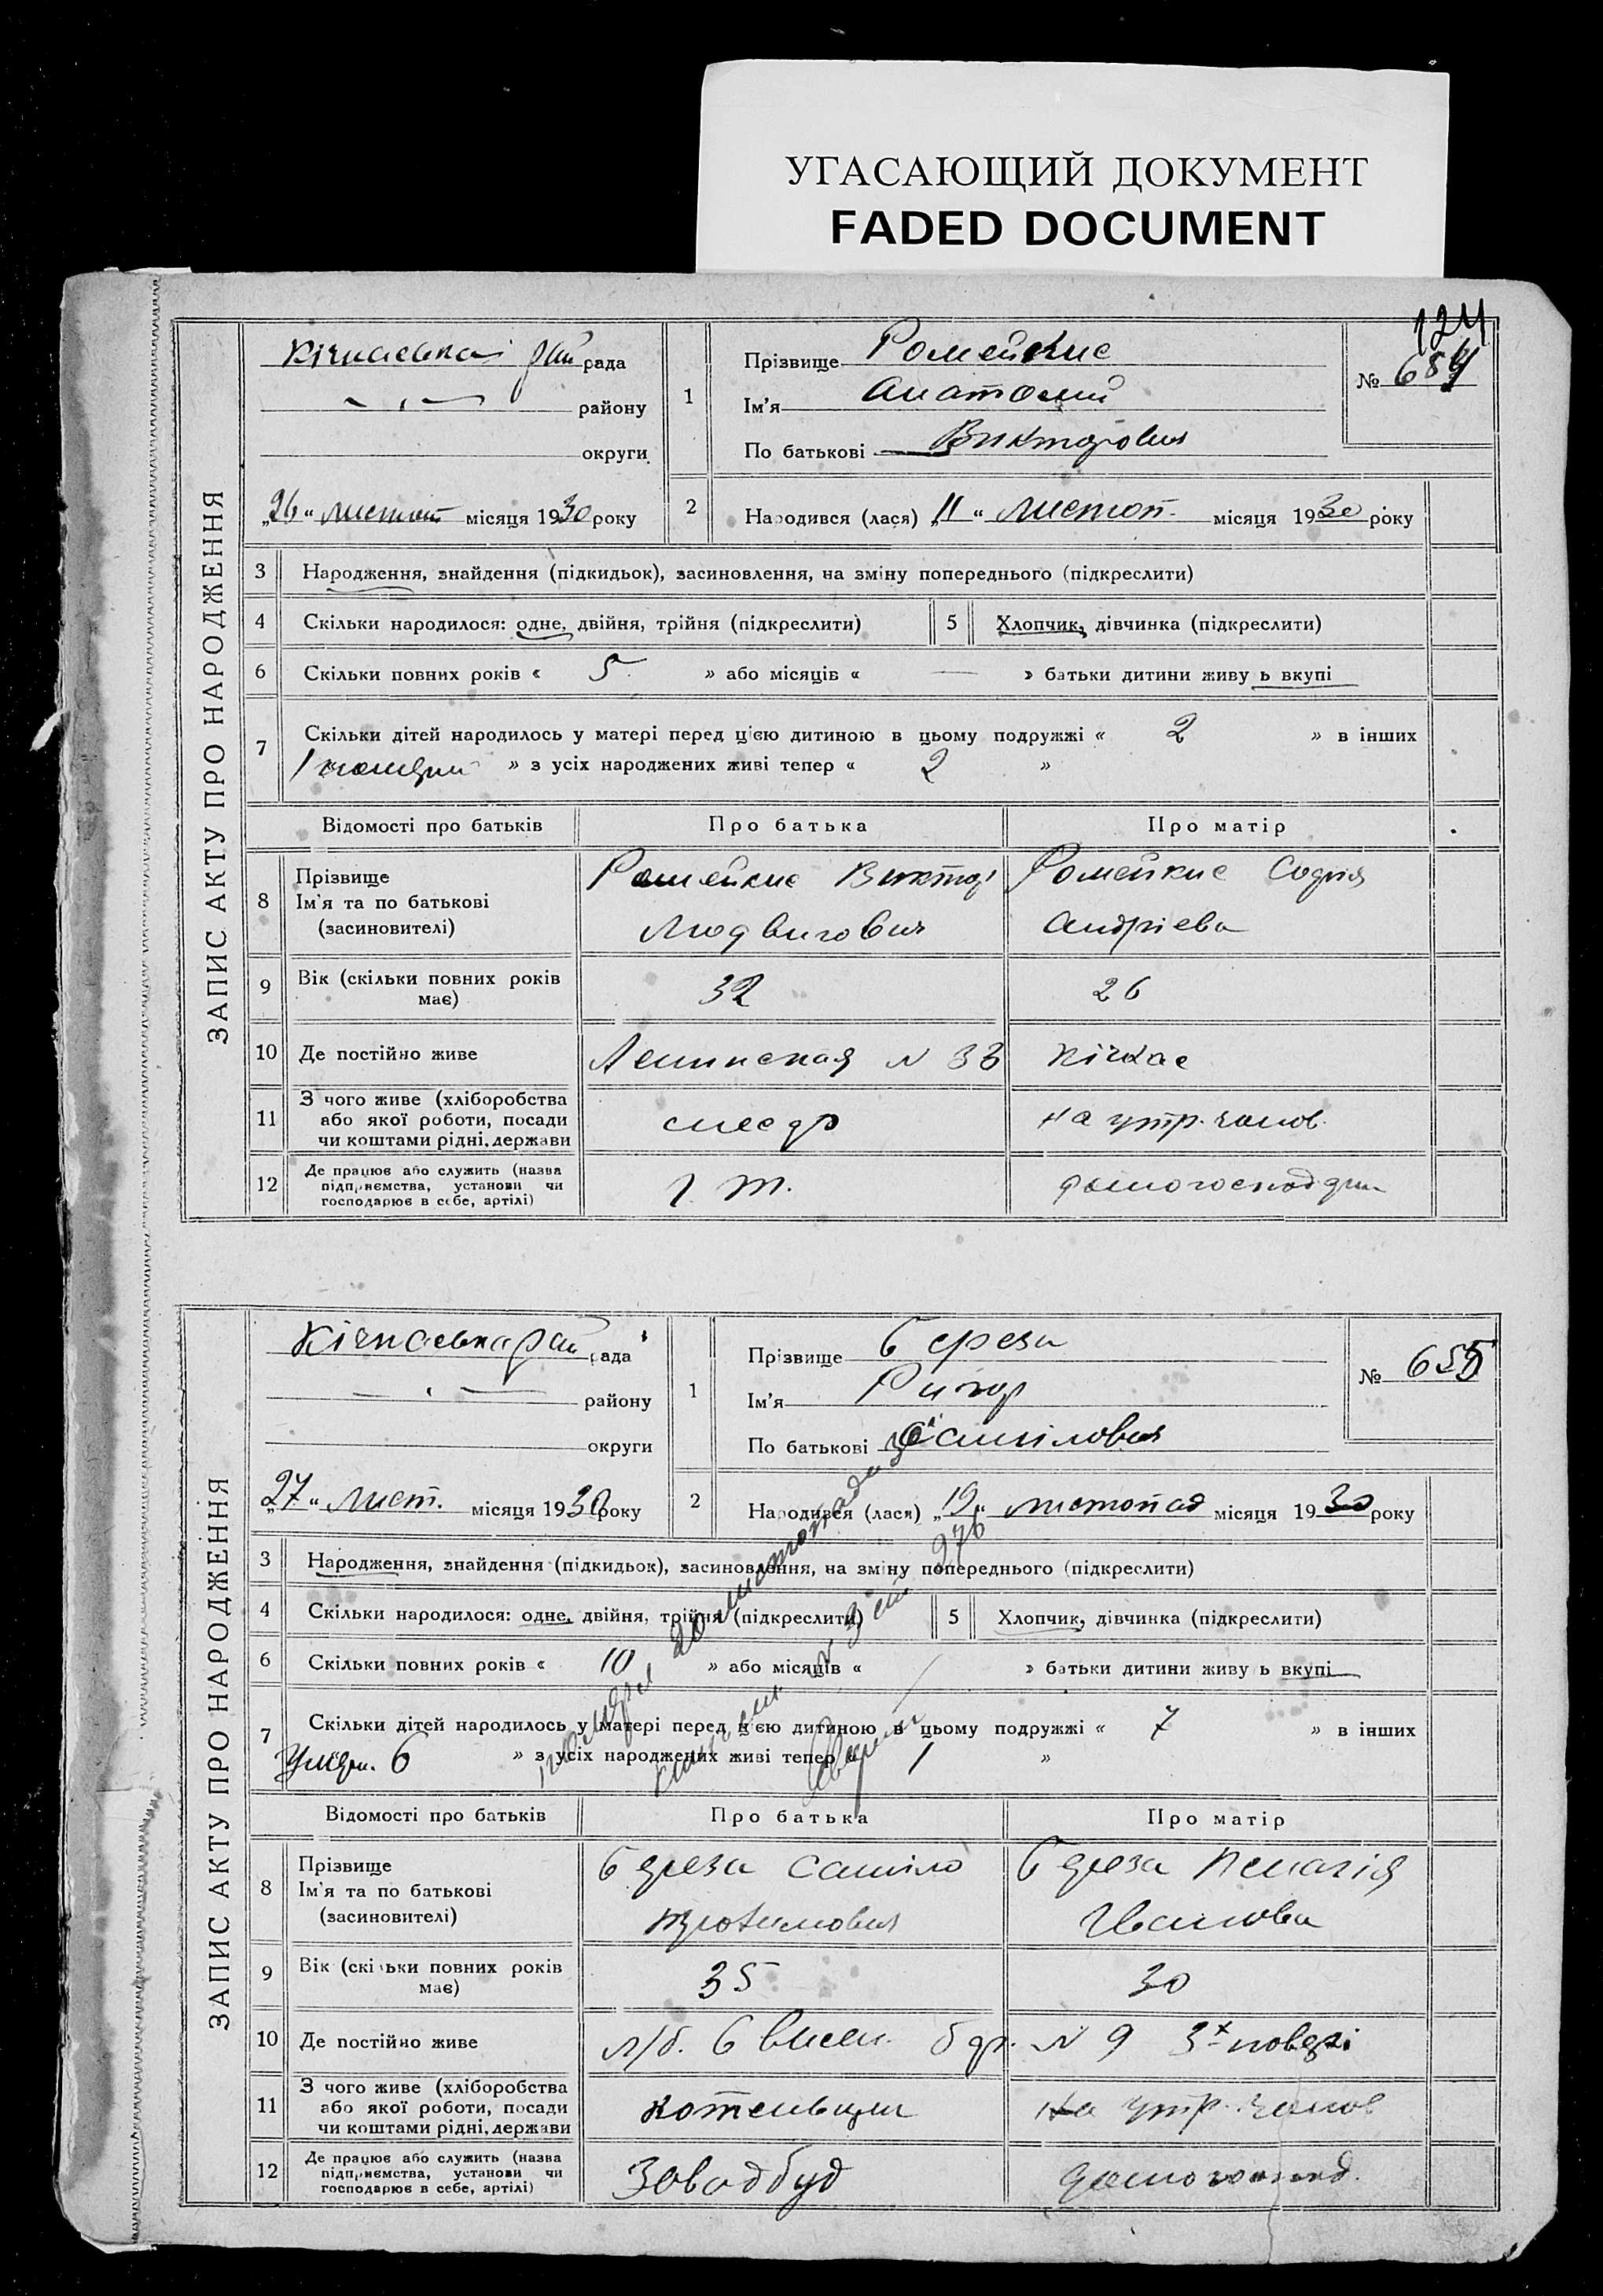 УГАСАЮЩИЙ ДОКУМЕНТ
FADED DOCUMENT
124
ЗАПИС АКТУ ПРО НАРОДЖЕННЯ
Кічкаська рай рада
— „ — району
округи
„26“ листоп місяця 1930 року
1
Прізвище Ромейкис
Ім'я Анатолий
По батькові Викторович
№ 684
2
Народився (лася) „11“ листоп. місяця 1930 року
3 Народження, знайдення (підкидьок), засиновлення, на зміну попереднього (підкреслити)
4 Скільки народилося: одне, двійня, трійня (підкреслити)
5 Хлопчик, дівчинка (підкреслити)
6 Скільки повних років « 5 » або місяців « — » батьки дитини живу ь вкупі
7 Скільки дітей народилось у матері перед цією дитиною в цьому подружжі « 2 » в інших
1 » з усіх народжених живі тепер « 2 »
Відомості про батьків Про батька Про матір
8 Прізвище
Ім'я та по батькові
(засиновителі)
Ромейкис Виктор
Людвигович
Ромейкис Софія
Андріева
9 Вік (скільки повних років
має)
32
26
10 Де постійно живе
Ленинская N 33
Кічкас
11 З чого живе (хліборобства
або якої роботи, посади
чи коштами рідні, держави
слесар
на утр. чолов.
12 Де працює або служить (назва
підприємства, установи чи
господарює в себе, артілі)
домогосподин
ЗАПИС АКТУ ПРО НАРОДЖЕННЯ
Кічкаська рай рада
— „ — району
округи
„27“ Лист. місяця 1930 року
1
Прізвище Береза
Ім'я Ригор
По батькові Самілович
№ 655
2
Народився (лася) „19“ листопад місяця 1930 року
3 Народження, знайдення (підкидьок), засиновлення, на зміну попереднього (підкреслити)
4 Скільки народилося: одне, двійня, трійня (підкреслити)
5 Хлопчик, дівчинка (підкреслити)
6 Скільки повних років « 10 » або місяців « / » батьки дитини живу ь вкупі
7 Скільки дітей народилось у матері перед цією дитиною в цьому подружжі « 7 » в інших
Умерл. 6 » з усіх народжених живі тепер « 1 »
20 листопада
276
Відомості про батьків Про батька Про матір
8 Прізвище
Ім'я та по батькові
(засиновителі)
Береза Саміло
Береза Пелагія
Іванова
9 Вік (скільки повних років
має)
35
30
10 Де постійно живе
л/б. 6 висел. бар. N 9 3х повер.
11 З чого живе (хліборобства
або якої роботи, посади
чи коштами рідні, держави
котельщик
на утр. чолов
12 Де працює або служить (назва
підприємства, установи чи
господарює в себе, артілі)
Заводбуд
домогоспод.